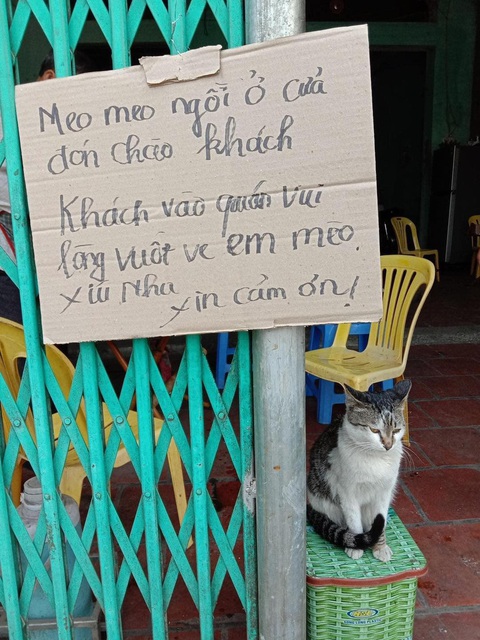 Meo meo ngồi ở cửa
đón chào khách
Khách vào quán vui
lòng vuốt ve em mèo.
xíu nha
xin cảm ơn!